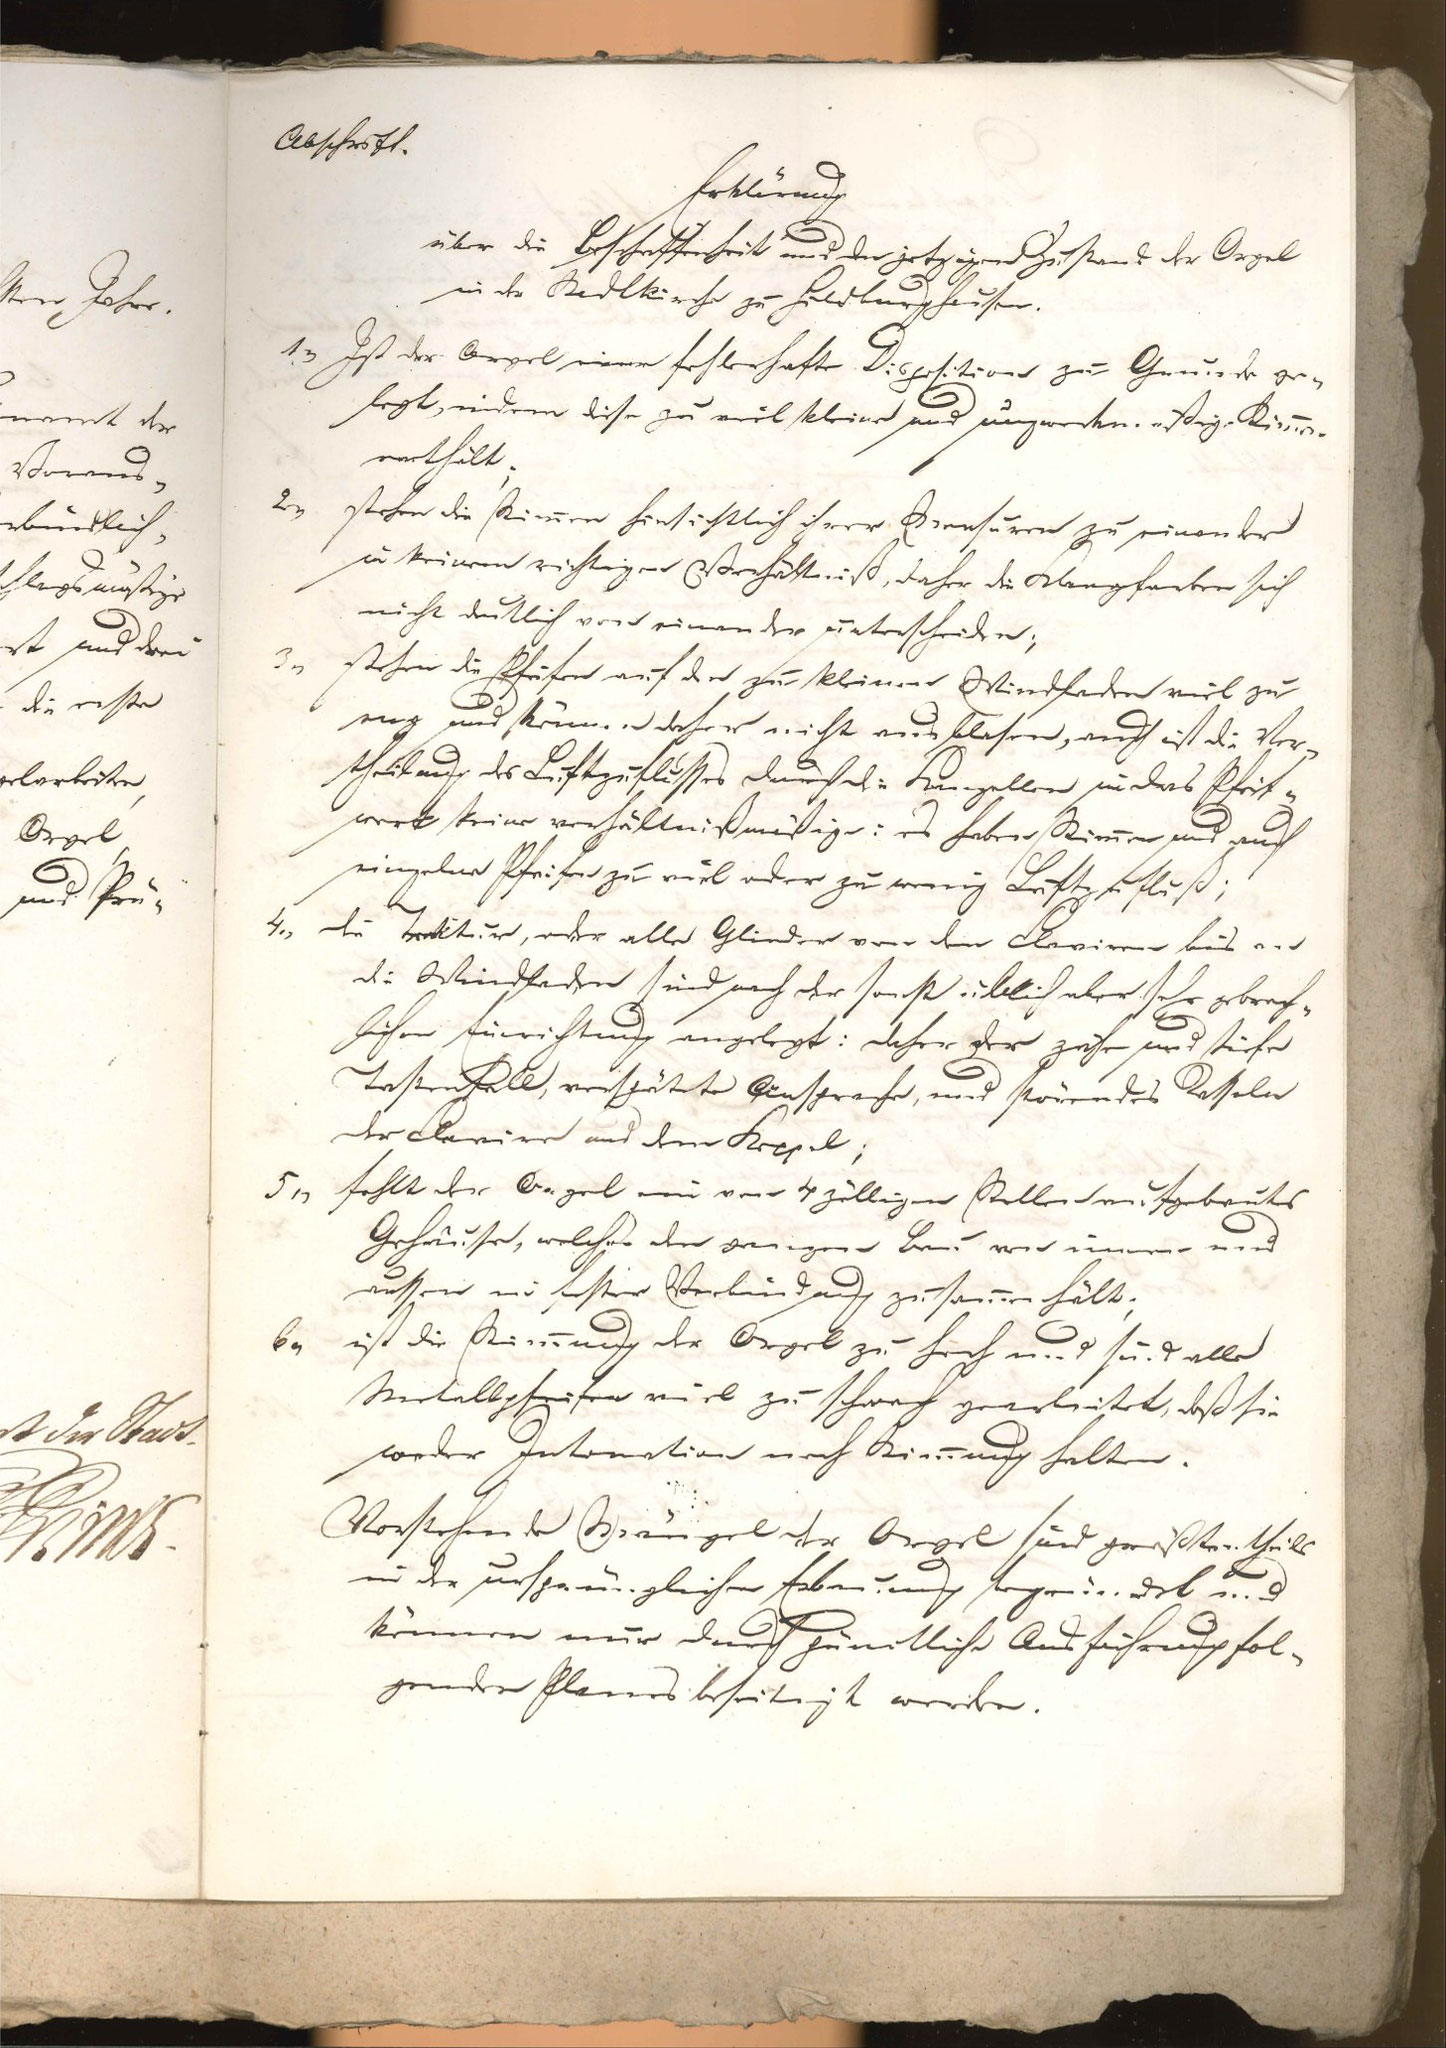 Abschrift.
Erklärung
über die Beschaffenheit und den jetzigen Zustand der Orgel
in der Stadtkirche zu Hildburghausen.
1.) Ist der Orgel eine fehlerhafte Disposition zu Grunde ge-
legt, indem diese zu viel kleine und unzweckmäßige Stimmen
enthält;
2.) stehen die Stimmen hinsichtlich ihrer Mensuren zu einander
in keinem richtigen Verhältniß, daher die Klangfarben sich
nicht deutlich von einander unterscheiden;
3.) stehen die Pfeifen auf den zu kleinen Windladen viel zu
eng und können daher nicht ausblasen, auch ist die Ver-
theilung des Luftzuflusses durch die Kanzellen in das Pfeif-
werk keine verhältnißmäßige: es haben Stimmen und auch
einzelne Pfeifen zu viel oder zu wenig Luftzufluß;
4.) die Traktur, oder alle Glieder von den Clavieren bis an
die Windladen sind nach der sonst üblich aber sehr gebrech-
lichen Einrichtung angelegt: daher der zähe und tiefe
Tastenfall, verspätete Ansprache, und störendes Rasseln
der Claviere und dem Koppel;
5.) fehlt der Orgel ein von 4 zölligen Stollen aufgebautes
Gehäuse, welches den ganzen Bau von innen und
aussen in fester Verbindung zusammenhält;
6.) ist die Stimmung der Orgel zu hoch und sind alle
Metallpfeifen viel zu schwach gearbeitet, daß sie
weder Intonation noch Stimmung halten.
Vorstehende Mängel der Orgel sind größtentheils
in der ursprünglichen Erbauung begründet und
können nur durch pünktliche Ausführung fol-
genden Planes beseitigt werden.
sten Jahre.
der
Voraus-
erbindlich-
schlagsmäßige
und drei
die erste
gelarbeiten,
Orgel
und Prü-
der Stadt-